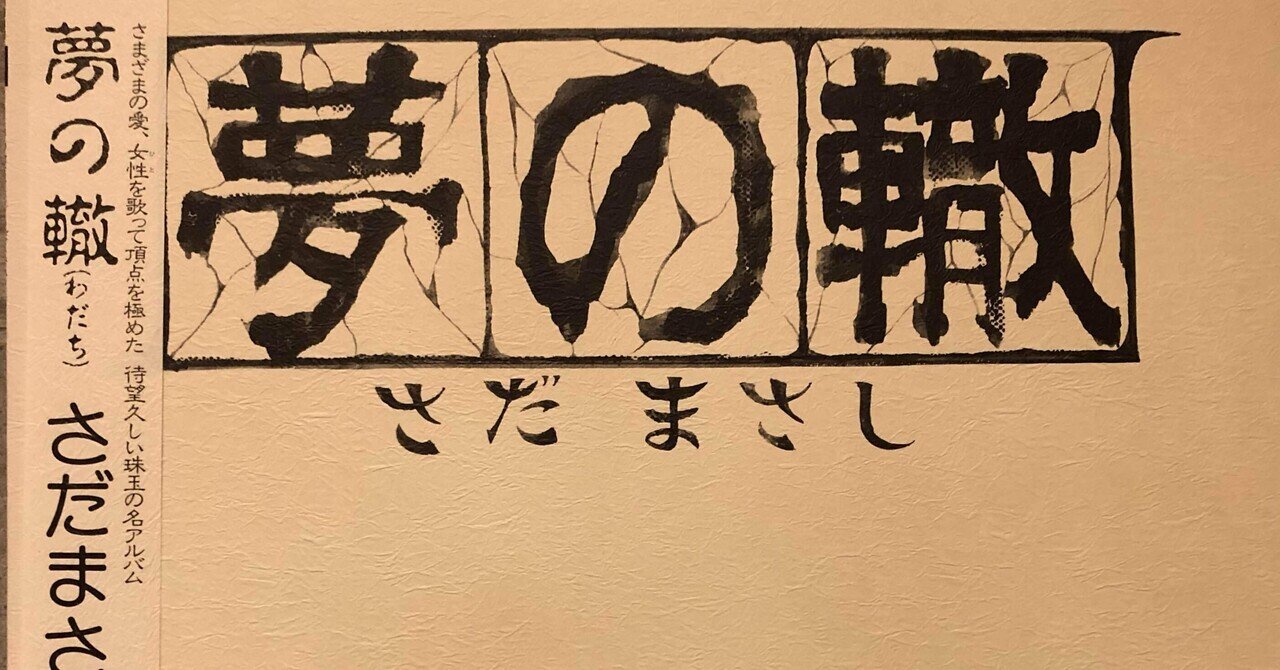 夢の轍
さだまさし
さまざまの愛、女性を歌って頂点を極めた 待望久しい珠玉の名アルバム
ひと
夢の轍(わだち) さだまさ